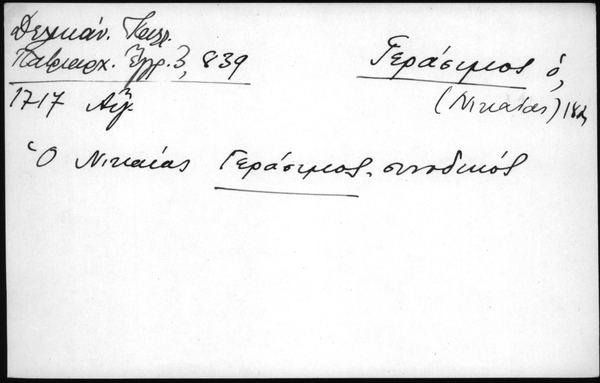 Δεληκάν. Καλλ.
Πατριαρχ. Ἔγγρ. 3, 839
1717 Αὔγ.
Γεράσιμος ὁ,
(Νικαίας) 18
Ὁ Νικαίας Γεράσιμος, συνοδικός